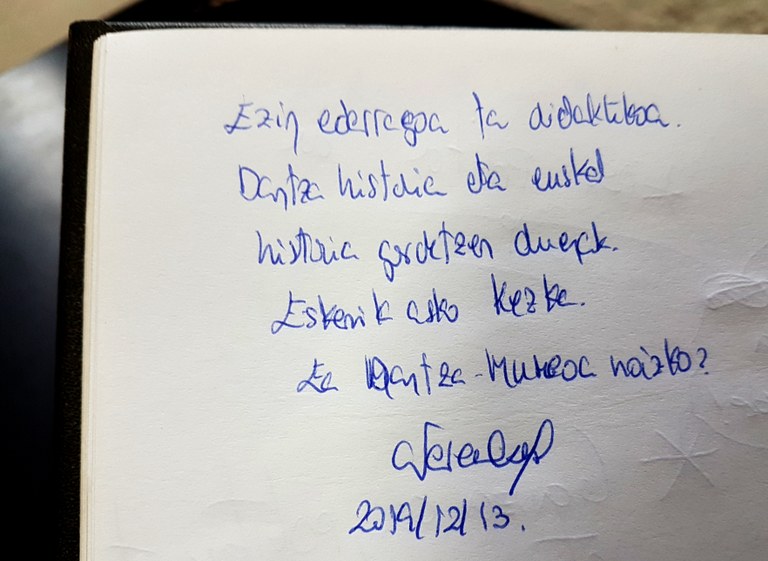 Ezin ederragoa ta didaktikoa.
Dantza historia eta euskal
historia gordetzen duenak.
Eskerrik asko Kezka.
Ea Dantza-Museoa noizko?
2019/12/13.